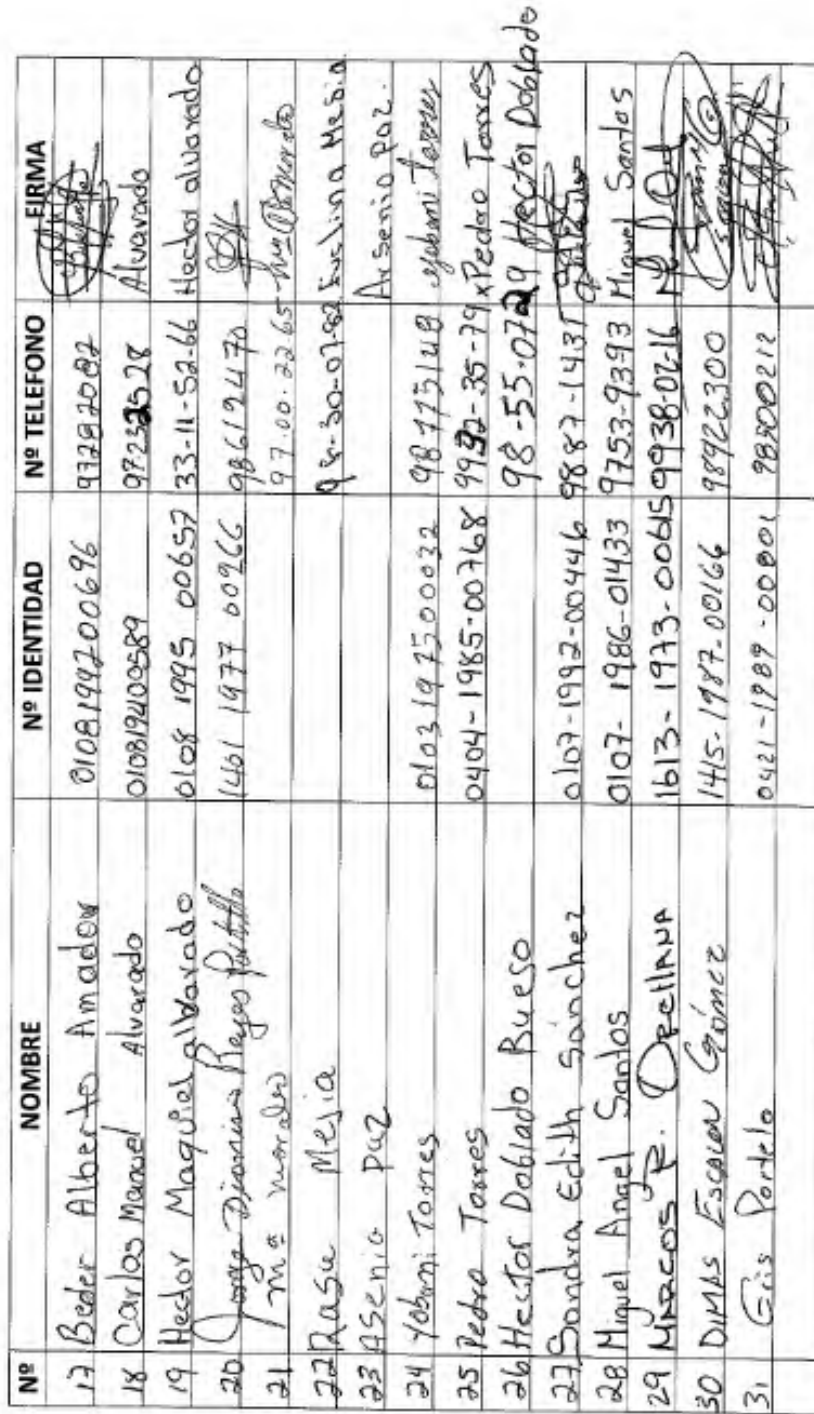 Nº NOMBRE Nº IDENTIDAD Nº TELEFONO FIRMA
17 Beder Alberto Amador 0108199200696 97282082
18 Carlos Manuel Alvarado 010819400589 Alvarado
19 Hector Maquiel alvarado 0108 1995 00657 33-11-52-66 Hector alvarado
20 Jorge Dionisio Reyes Portillo 1401 1977 00966 98612470
21 Mª Morales 97-00-22-65
22 Rasu Mejia
23 ASenio paz Arsenio paz.
24 Yobani Torres 0103197500032 98775148 yobani torres
25 Pedro Torres 0404-1985-00768 9932-35-79 x Pedro Torres
26 Hector Doblado Bueso 98-55-0729 Hector Doblado
27 Sandra Edith Sanchez 0107-1992-00446 9887-1437
28 Miguel Angel Santos 0107-1986-01433 9753-9393 Miguel Santos
29 MARCOS R. OrellANA 1613-1973-00615 9938-02-16
30 DIMAS Gómez 1415-1987-00166 98922300
31 0421-1989-00001 98900212